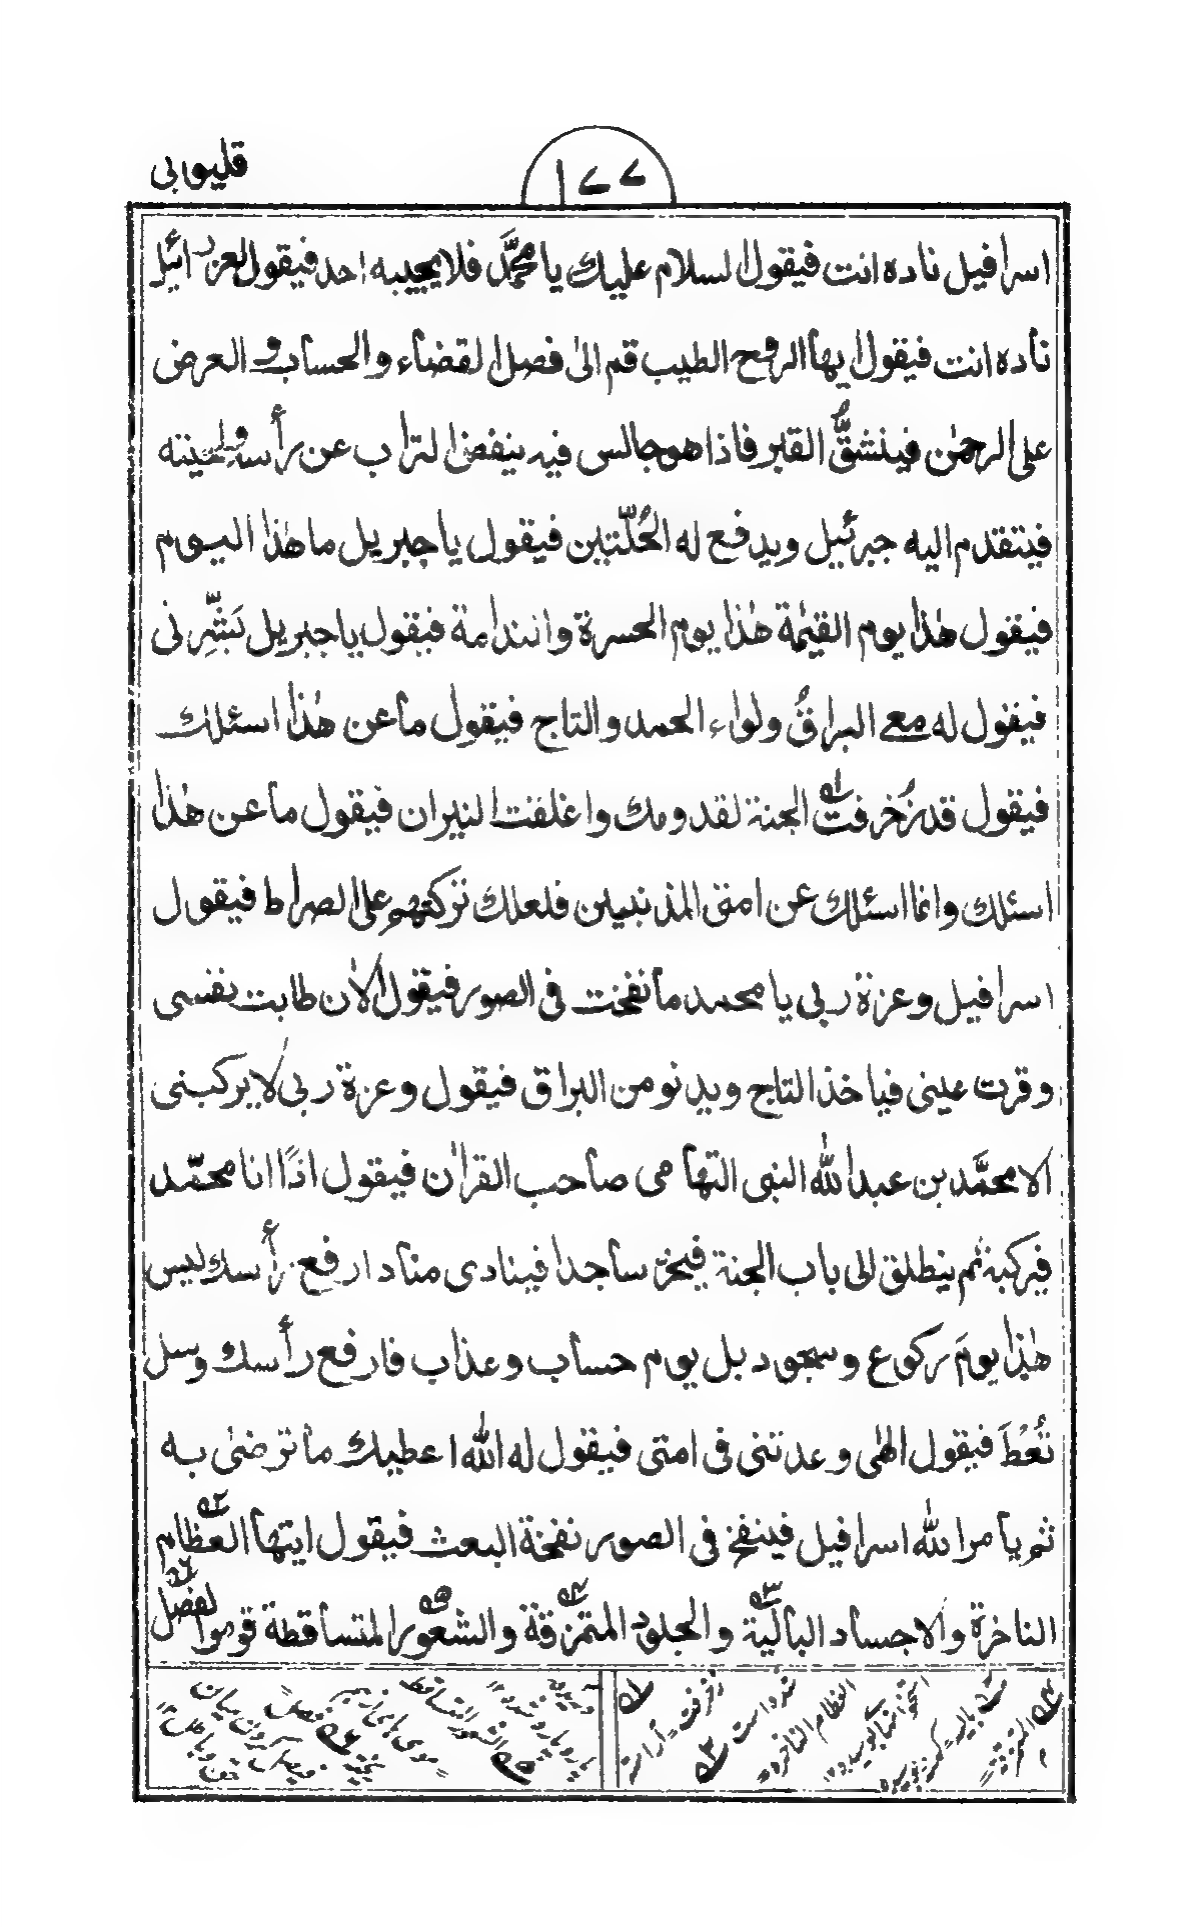 قليوبي
١٧٧
اسرافيل ناده انت فيقول السلام عليك يا محمَّد فلا يجيبه احد فيقول لعزرائيل
ناده انت فيقول ايها الروح الطيب قم الىٰ فصل القضاء والحساب و العرض
على الرحمٰن فينشقُّ القبر فاذا هو جالس فيه ينفض التراب عن رأسه ولحيته
فيتقدم اليه جبرئيل ويدفع له الحُلّتين فيقول يا جبريل ما هٰذا اليوم
فيقول هٰذا يوم القيٰمة هٰذا يوم الحسرة والندامة فيقول يا جبريل بَشِّرنى
فيقول له معے البراقُ ولواء الحمد والتاج فيقول ما عن هٰذا اسئلك
فيقول قد زُخرفت الجنة لقدومك واغلقت النيران فيقول ما عن هٰذا
اسئلك وانما اسئلك عن امتى المذنبين فلعلك تركتهم على الصراط فيقول
اسرافيل وعزة ربى يا محمد ما نفخت فى الصور فيقول الاٰن طابت نفسى
وقرت عينى فياخذ التاج ويدنو من البراق فيقول وعزة ربى لا يركبنى
الا محمَّد بن عبد الله النبى التهامى صاحب القراٰن فيقول اذًا انا محمّد
فيركبه ثم ينطلق الى باب الجنة فيخرّ ساجدا فينادى مناد ارفع رأسك ليس
هٰذا يومَ ركوع وسجود بل يوم حساب وعذاب فارفع رأسك وسل
تُعْطَ فيقول الهٰى وعدتنى فى امتى فيقول له الله اعطيك ما ترضىٰ به
ثم يأمر الله اسرافيل فينفخ فى الصور نفخة البعث فيقول ايتها العظام
الناخرة والاجساد البالية والجلود المتمزقة والشعور المتساقطة قوموا لفصل